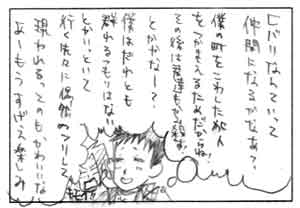 しだいならっていって
仲間になるがなあ？
僕の町をこわした犯人
をつかまえるためだからね！
その後は君達もぶっ殺す！
とかかなー？
僕はだれとも
群れるつもりはない
とかいっといて
行く先々に偶然めかして
現われるってのもかわいいな
あーもうすげえ楽しみ